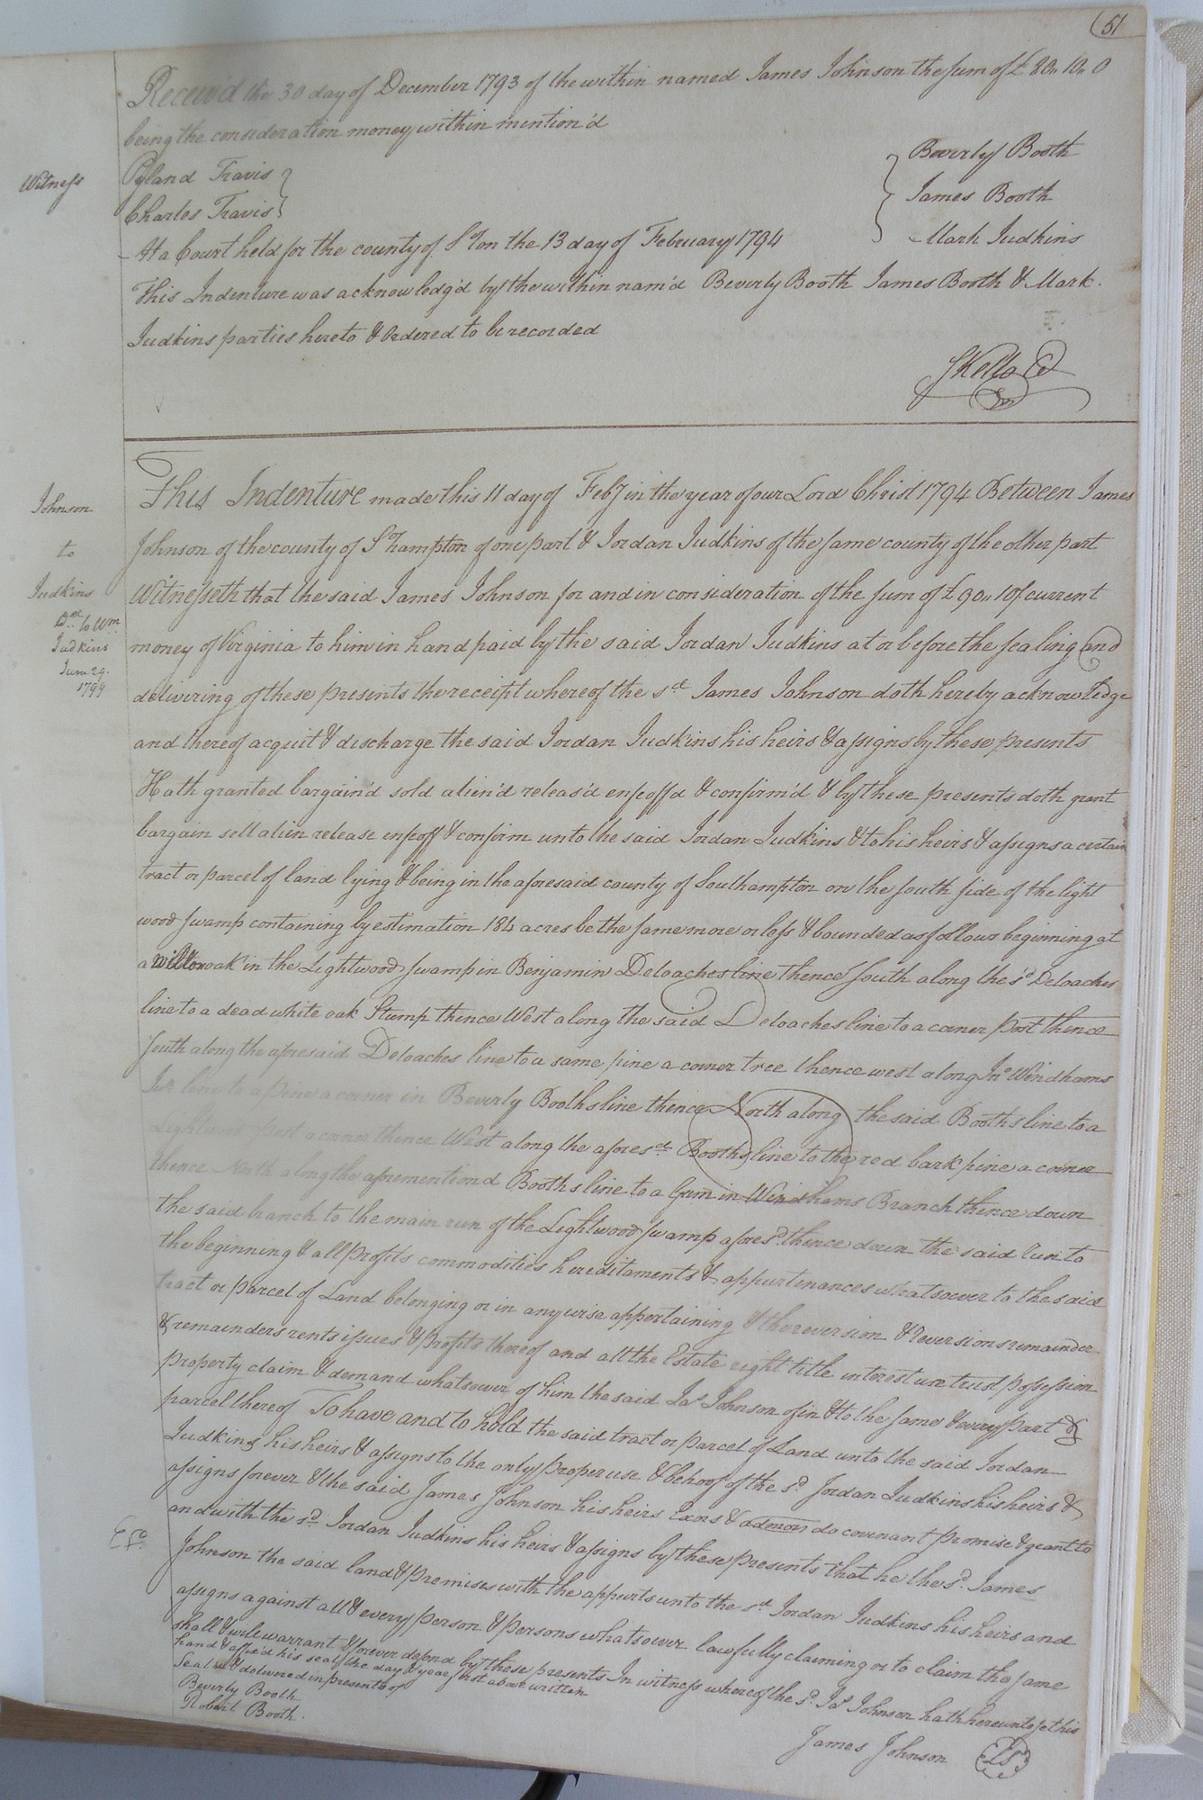 51
Receivd the 30 day of December 1793 of the within named James Johnson the sum of £ 80 " 10 " 0
being the consideration money within mention'd
Witness
Pyland Travis
Charles Travis
Beverly Booth
James Booth
Mark Judkins
At a Court held for the county of S°ton the 13 day of February 1794
This Indenture was acknowledg'd by the within nam'd Beverly Booth James Booth & Mark
Judkins parties hereto & Ordered to be recorded
Johnson
to
Judkins
to Wm
Judkins
June 29.
1799
This Indenture made this 11 day of Feby in the year of our Lord Christ 1794 Between James
Johnson of the county of S°hampton of one part & Jordan Judkins of the same county of the other part
Witnesseth that the said James Johnson for and in consideration of the sum of £ 90 " 10 of current
money of Virginia to him in hand paid by the said Jordan Judkins at or before the sealing and
delivering of these presents the receipt whereof the sd. James Johnson doth hereby acknowledge
and thereof acquit & discharge the said Jordan Judkins his heirs & assigns by these presents
Hath granted bargain'd sold alien'd releas'd enfeoff'd & confirm'd & by these presents doth grant
bargain sell alien release enfeoff & confirm unto the said Jordan Judkins & to his heirs & assigns a certain
tract or parcel of land lying & being in the aforesaid county of Southampton on the south side of the light
wood swamp containing by estimation 184 acres be the same more or less & bounded as follows beginning at
a willow oak in the Lightwood swamp in Benjamin Deloaches line thence South along the sd Deloaches
line to a dead white oak Stump thence West along the said Deloaches line to a corner Post thence
South along the aforesaid Deloaches line to a same pine a corner tree thence west along Jno Windhams
Jur line to a pine a corner in Beverly Booths line thence North along the said Booths line to a
Lightwood post a corner thence West along the afores.d Booths line to the red bark pine a corner
thence North along the aforementiond Booths line to a Gum in Windhams Branch thence down
the said branch to the main run of the Lightwood swamp afores.d thence down the said run to
the beginning & all profits commodities hereditaments & appurtenances whatsoever to the said
tract or parcel of Land belonging or in any wise appertaining & the reversion & reversions remainder
& remainders rents issues & profits thereof and all the Estate right title interest use trust possession
property claim & demand whatsoever of him the said Jas Johnson of in & to the same & every part &
parcel thereof To have and to hold the said tract or parcel of Land unto the said Jordan
Judkins his heirs & assigns to the only proper use & behoof of the sd. Jordan Judkins his heirs &
assigns forever & the said James Johnson his heirs Exors & admors do covenant promise & grant to
and with the sd. Jordan Judkins his heirs & assigns by these presents that he the sd. James
Johnson the said land & premises with the appurts unto the sd. Jordan Judkins his heirs and
assigns against all & every person & persons whatsoever lawfully claiming or to claim the same
shall & will warrant & forever defend by these presents In witness whereof the sd. Jas Johnson hath hereunto set his
hand & affix'd his seal the day & year first above written
Seal'd & delivered in presents of
Beverly Booth
Robert Booth.
James Johnson LS